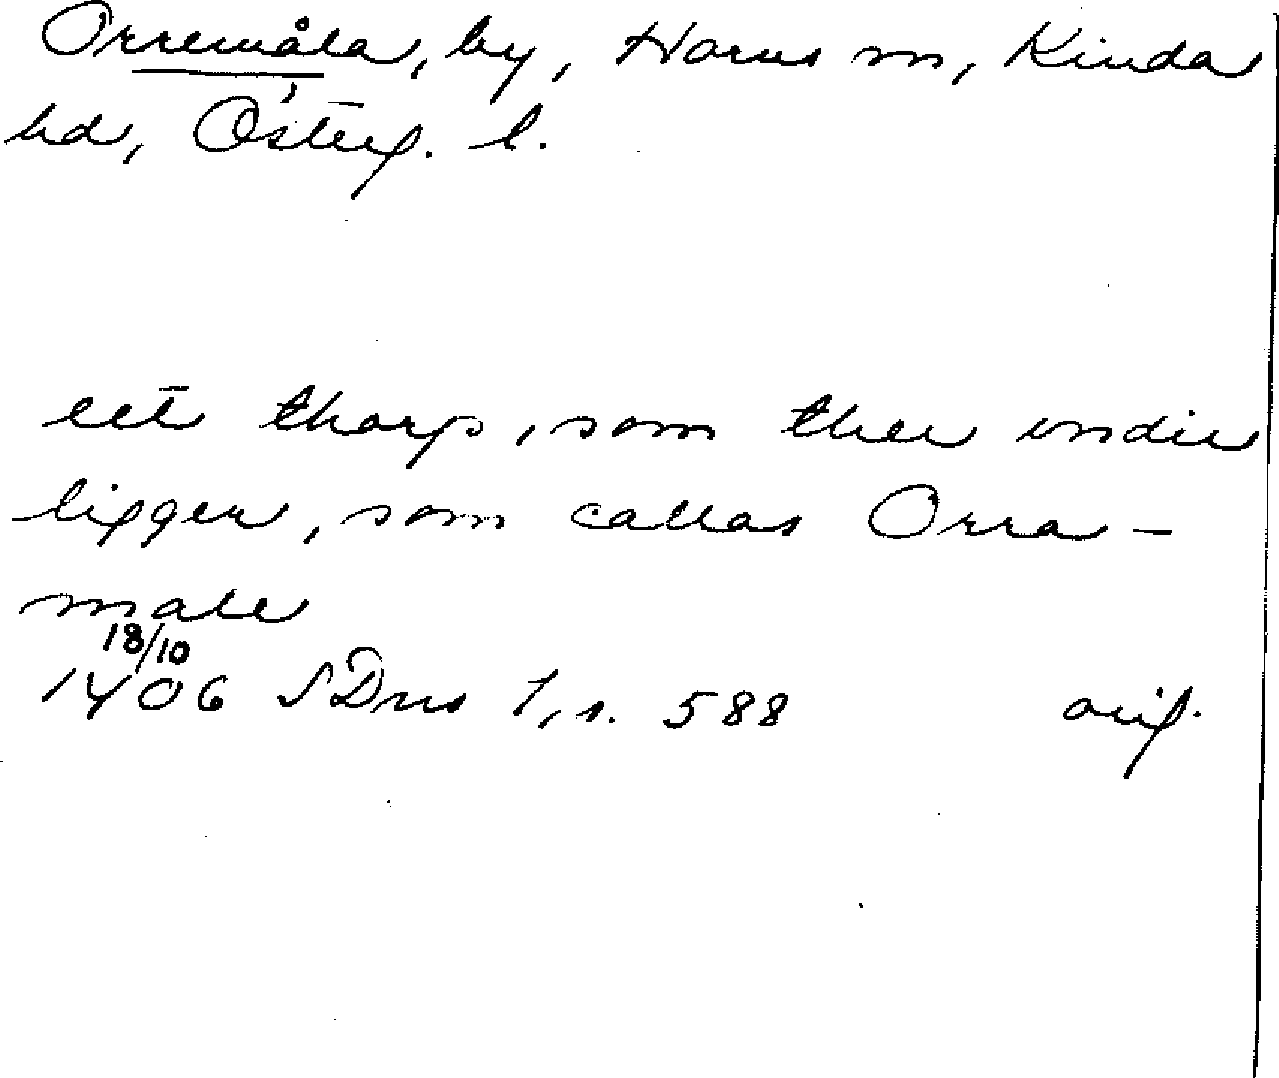 Orremåla, by, Horns sn, Kinda
hd, Österg. l.
eet thorp, som ther vndir
ligger, som callas Orra-
male
18/10
1406 SDns 1, s. 588 orig.